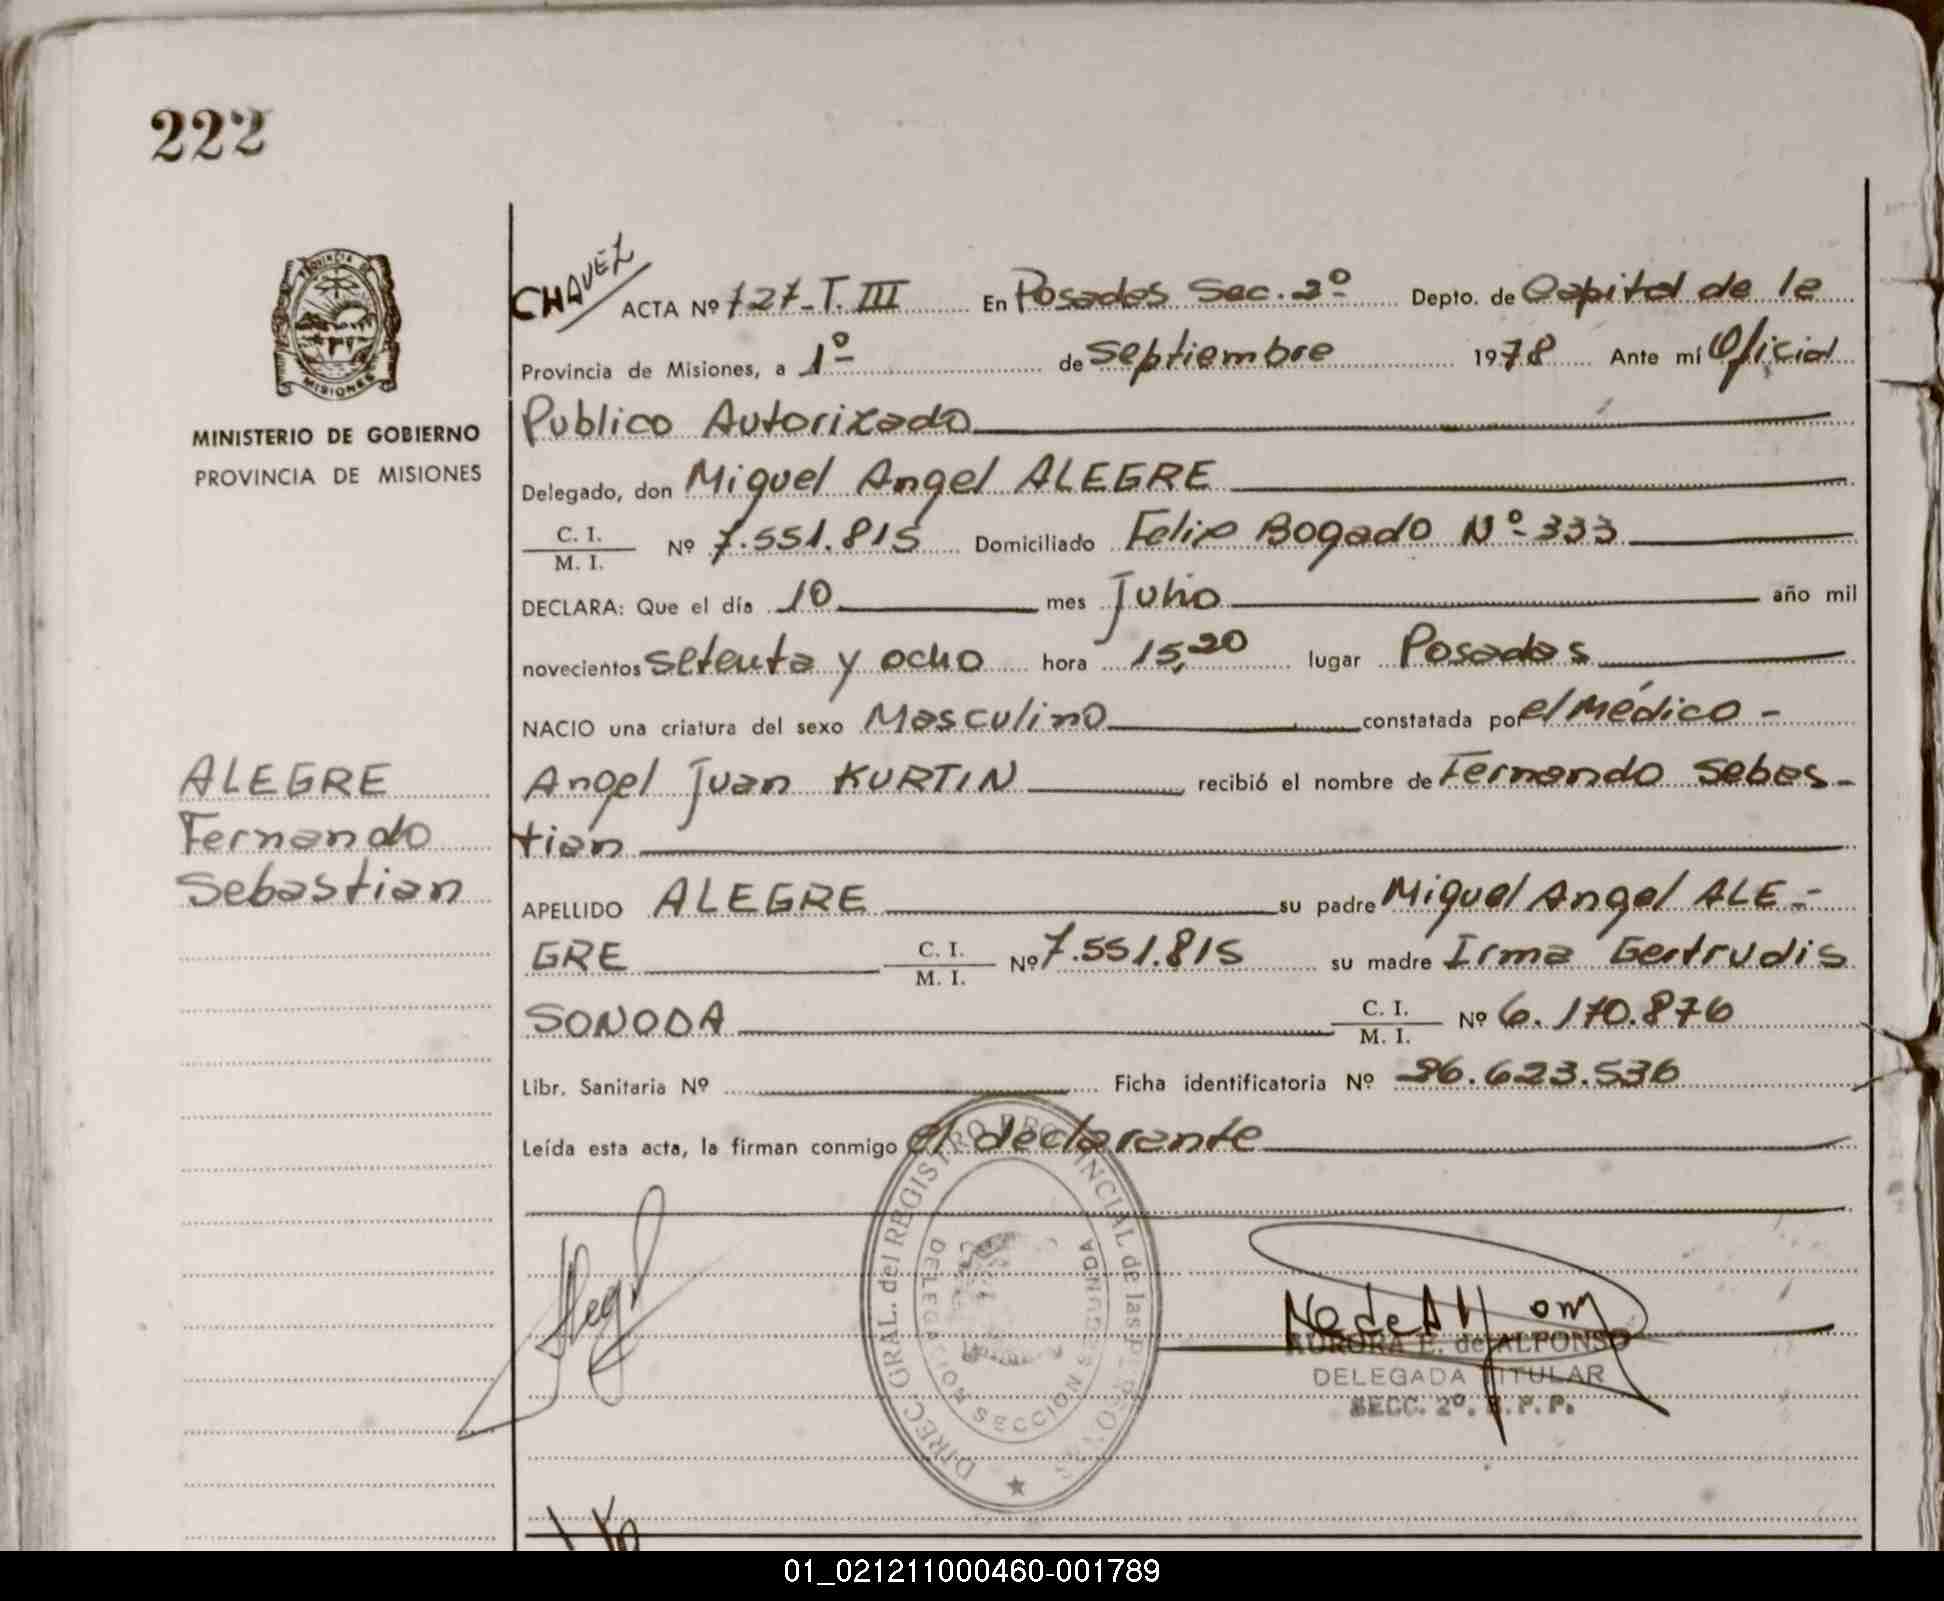 222
CHAVEZ
ACTA Nº 727-T. III En Posadas Sec. 2º Depto. de Capital de la
Provincia de Misiones, a 1º de Septiembre 1978 Ante mí Oficial
Publico Autorizado
MINISTERIO DE GOBIERNO
PROVINCIA DE MISIONES
Delegado, don Miguel Angel ALEGRE
C. I.
M. I. Nº 7.551.815 Domiciliado Felix Bogado Nº 333
DECLARA: Que el día 10 mes Julio año mil
novecientos setenta y ocho hora 15,20 lugar Posadas
NACIO una criatura del sexo Masculino constatada por el Médico -
Angel Juan KURTIN recibió el nombre de Fernando Sebas-
tian
ALEGRE
Fernando
Sebastian
APELLIDO ALEGRE su padre Miguel Angel ALE-
GRE C. I.
M. I. Nº 7.551.815 su madre Irma Gertrudis
SONODA C. I.
M. I. Nº 6.170.876
Libr. Sanitaria Nº Ficha identificatoria Nº 26.623.536
Leída esta acta, la firman conmigo el declarante
DIREC. GRAL. del REGISTRO PROVINCIAL de las PERSONAS
DELEGACION SECCION SEGUNDA
AURORA E. de ALFONSO
DELEGADA TITULAR
SECC. 2º. R. P. P.
01_021211000460-001789